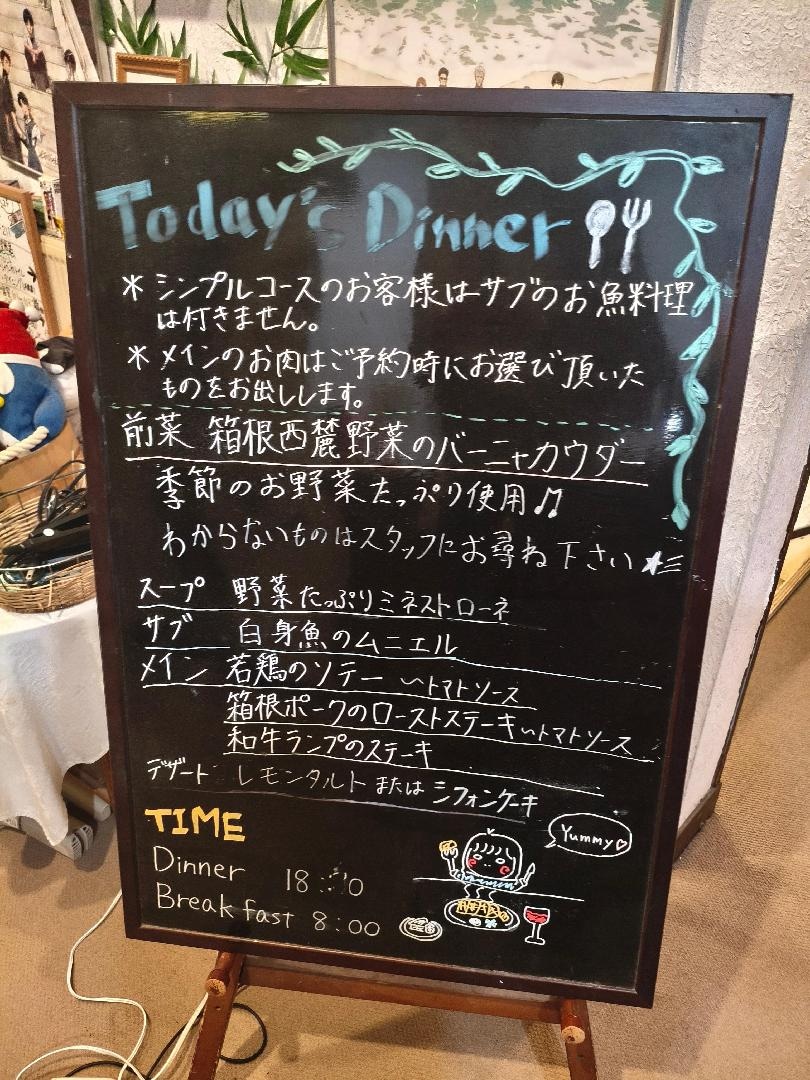 Today's Dinner
* シンプルコースのお客様はサブのお魚料理
は付きません。
* メインのお肉はご予約時にお選び頂いた
ものをお出しします。
前菜 箱根西麓野菜のバーニャカウダー
季節のお野菜たっぷり使用♫
わからないものはスタッフにお尋ね下さい★彡
スープ 野菜たっぷりミネストローネ
サブ 白身魚のムニエル
メイン 若鶏のソテー 〜トマトソース
箱根ポークのローストステーキ〜トマトソース
和牛ランプのステーキ
デザート レモンタルト または シフォンケーキ
TIME
Yummy♡
Dinner
Breakfast 8:00